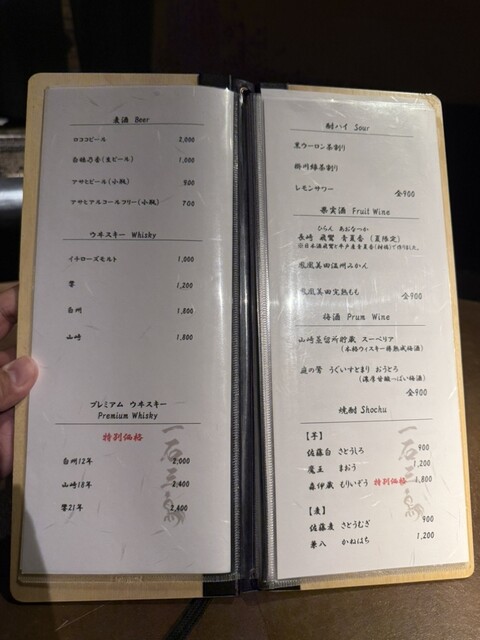 麦酒 Beer
ロココビール 2,000
白穂乃香(生ビール) 1,000
アサヒビール(小瓶) 900
アサヒアルコールフリー(小瓶) 700
ウヰスキー Whisky
イチローズモルト 1,000
響 1,200
白州 1,800
山崎 1,800
プレミアム ウヰスキー
Premium Whisky
特別価格
白州12年 2,000
山崎18年 2,400
響21年 2,400
酎ハイ Sour
黒ウーロン茶割り
掛川緑茶割り
レモンサワー
全900
果実酒 Fruit Wine
ひらん あおなつか
長崎 飛鸞 青夏香 (夏限定)
※日本酒飛鸞と平戸産青夏香(柑橘)で作りました。
鳳凰美田温州みかん
鳳凰美田完熟もも
全900
梅酒 Prum Wine
山崎蒸留所貯蔵 スーペリア
(本格ウィスキー樽熟成梅酒)
庭の鶯 うぐいすとまり おうとろ
(濃厚甘酸っぱい梅酒)
全900
焼酎 Shochu
【芋】
佐藤白 さとうしろ 900
魔王 まおう 1,200
森伊蔵 もりいぞう 特別価格 1,800
【麦】
佐藤麦 さとうむぎ 900
兼八 かねはち 1,200